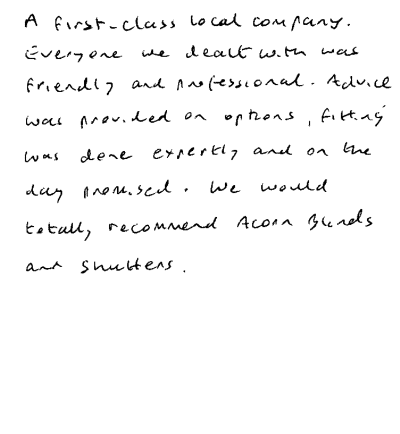 A first-class local company.
Everyone we dealt with was
friendly and professional. Advice
was provided on options, fitting
was done expertly and on the
day promised. We would
totally recommend Acorn Blinds
and Shutters.